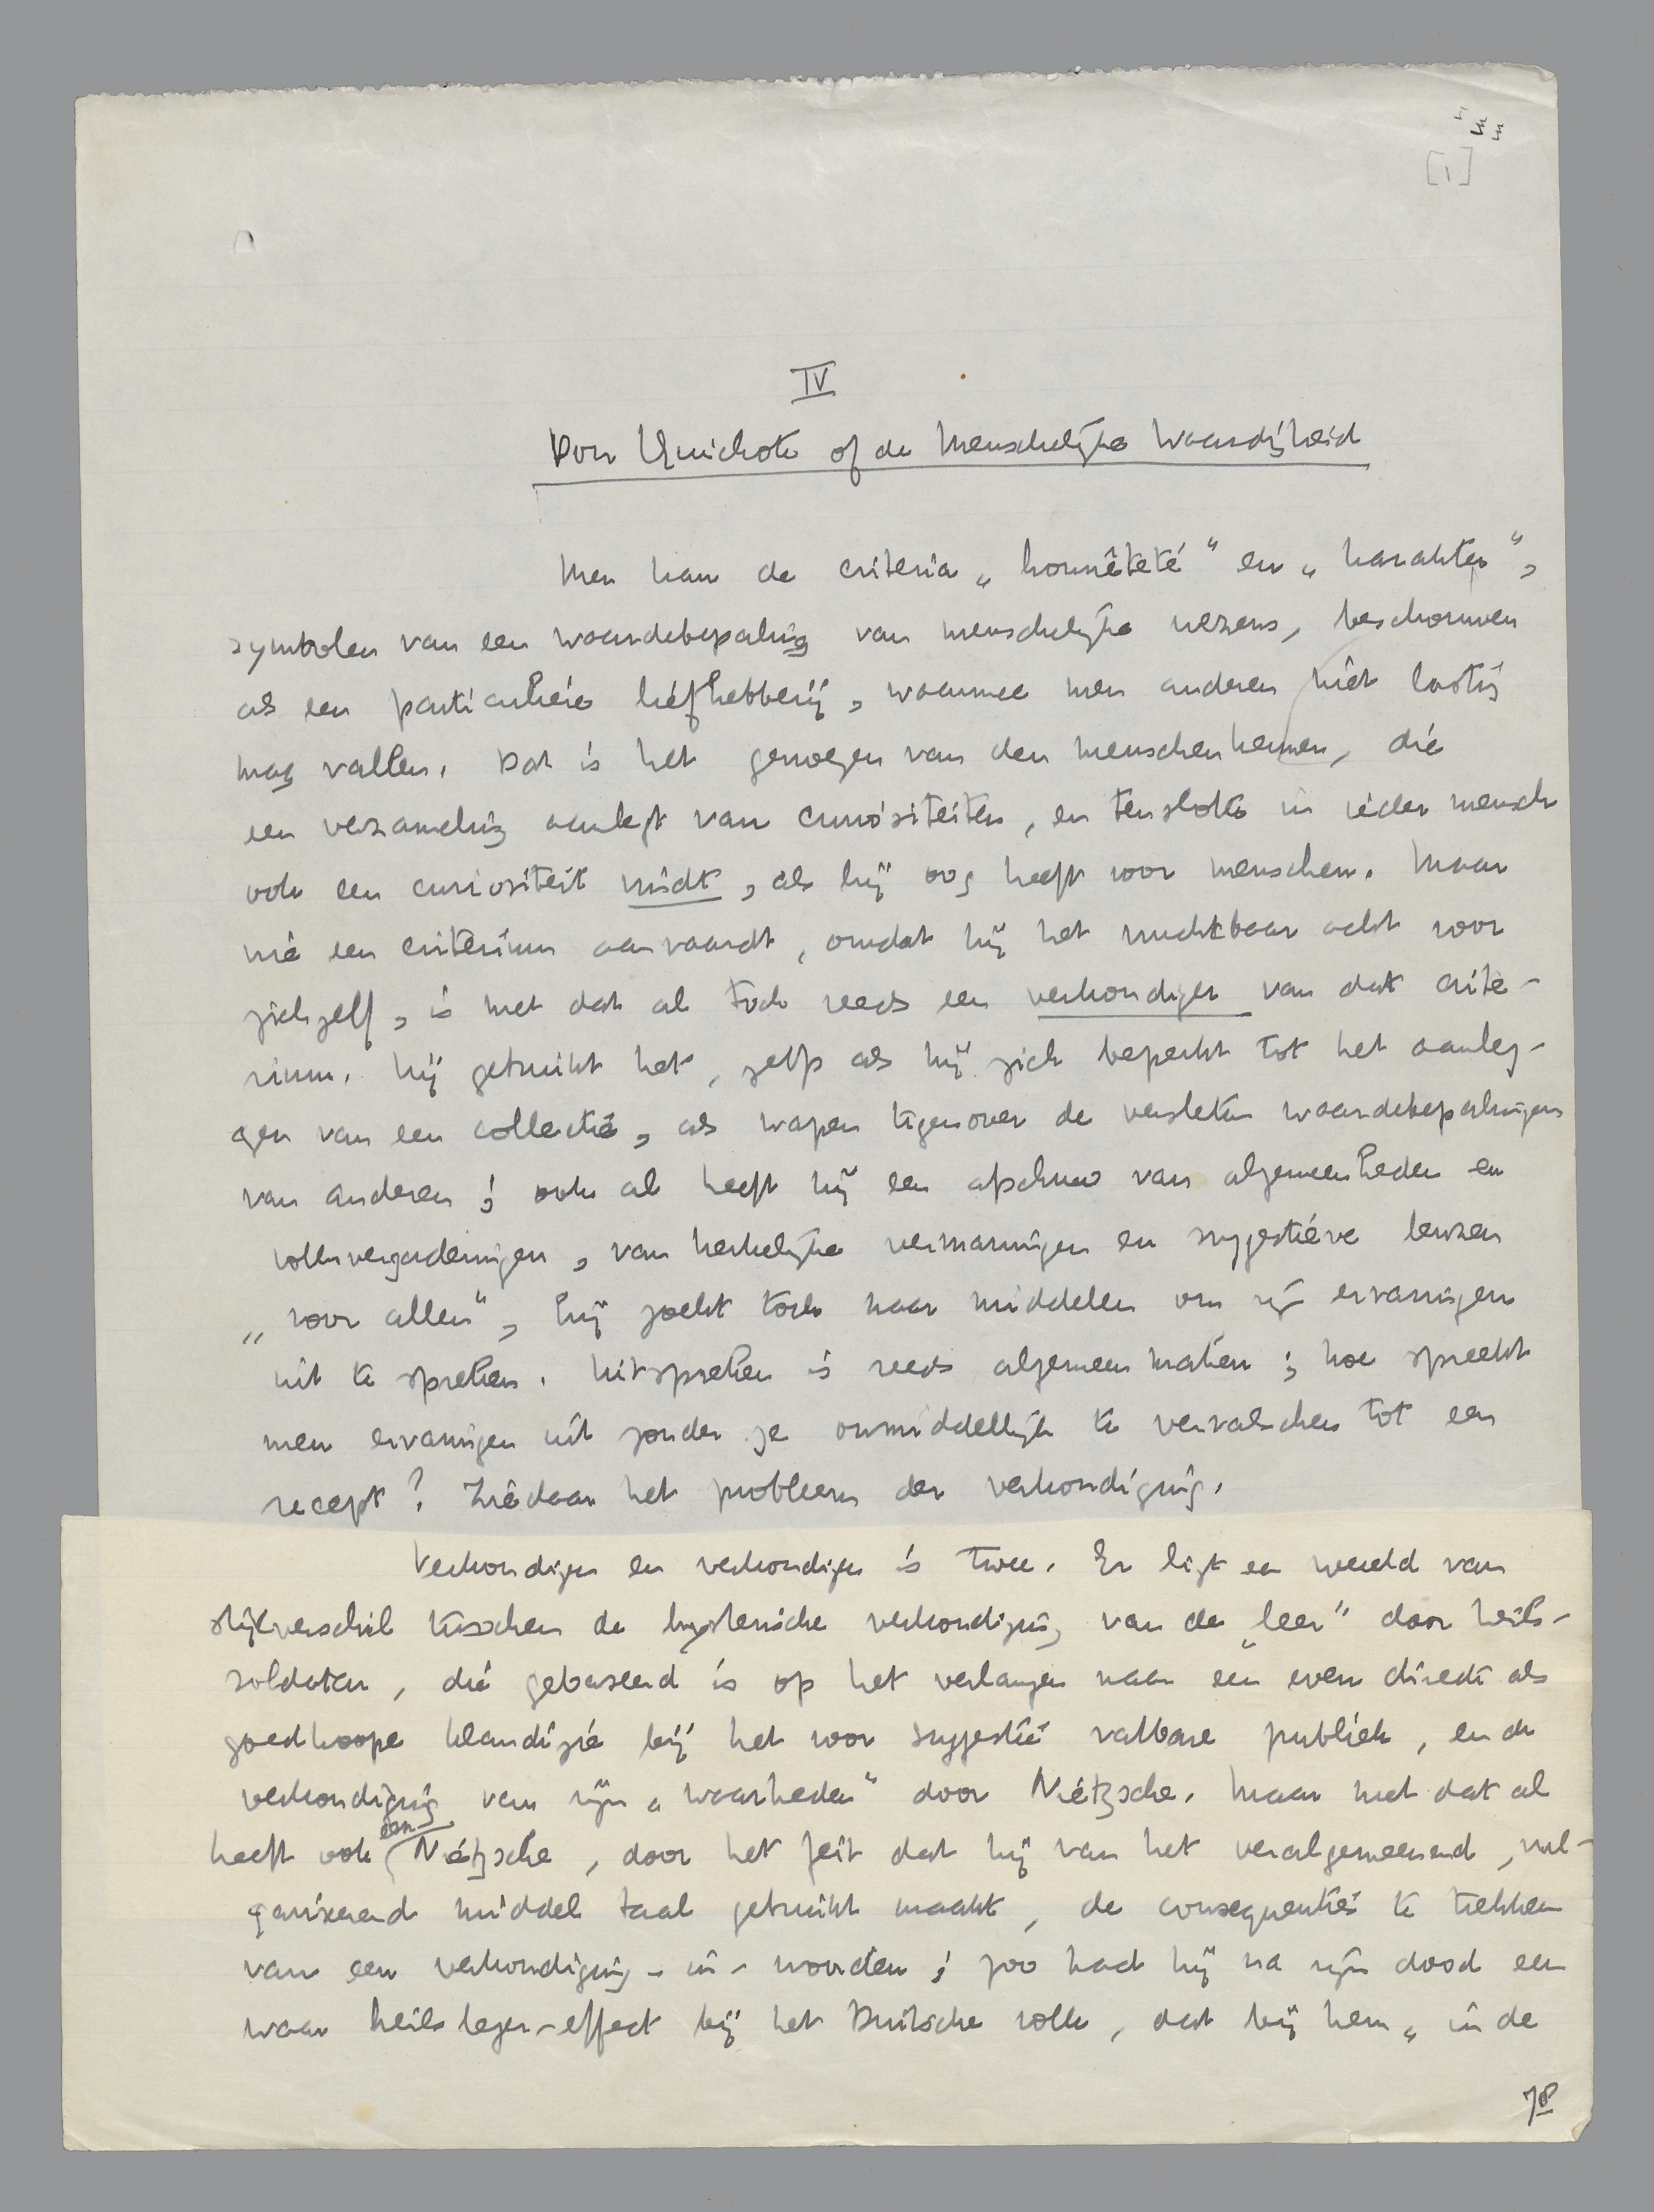 133
[1]
IV
Don Quichote of de Menschelijke Waardigheid
Men kan de criteria „honnêteté” en „karakter”,
symbolen van een waardebepaling van menschelijke wezens, beschouwen
als een particuliere liefhebberij, waarmee men anderen niet lastig
mag vallen. Dat is het genoegen van den menschenkenner, die
een verzameling aanlegt van curiositeiten, en tenslotte in ieder mensch
ook een curiositeit vindt, als hij oog heeft voor menschen. Maar
wie een criterium aanvaardt, omdat hij het vruchtbaar acht voor
zichzelf, is met dat al toch reeds een verkondiger van dat crite-
rium. Hij gebruikt het, zelfs als hij zich beperkt tot het aanleg-
gen van een collectie, als wapen tegenover de versleten waardebepalingen
van anderen; ook al heeft hij een afschuw van algemeenheden en
volksvergaderingen, van kerkelijke vermaningen en suggestieve leuzen
„voor allen”, hij zoekt toch naar middelen om zijn ervaringen
uit te spreken. Uitspreken is reeds algemeen maken; hoe spreekt
men ervaringen uit zonder ze onmiddellijk te vervalschen tot een
recept? Ziedaar het probleem der verkondiging.
Verkondigen en verkondigen is twee. Er ligt een wereld van
stijlverschil tusschen de hysterische verkondiging van de „leer” door heils-
soldaten, die gebaseerd is op het verlangen naar een even directe als
goedkoope klandizie bij het voor suggestie vatbare publiek, en de
verkondiging van zijn „waarheden” door Nietzsche. Maar met dat al
heeft ook een Nietzsche, door het feit dat hij van het veralgemeenend, vul-
gariseerend middel taal gebruikt maakt, de consequenties te trekken
van een verkondiging-in-woorden; zoo had hij na zijn dood een
waar heilsleger-effect bij het Duitsche volk, dat bij hem „in de
78